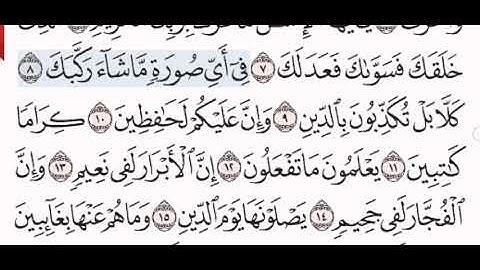 خَلَقَكَ فَسَوَّىٰكَ فَعَدَلَكَ ٧ فِىٓ أَىِّ صُورَةٍ مَّا شَآءَ رَكَّبَكَ ٨
كَلَّا بَلْ تُكَذِّبُونَ بِٱلدِّينِ ٩ وَإِنَّ عَلَيْكُمْ لَحَـٰفِظِينَ ١٠ كِرَامًا
كَـٰتِبِينَ ١١ يَعْلَمُونَ مَا تَفْعَلُونَ ١٢ إِنَّ ٱلْأَبْرَارَ لَفِى نَعِيمٍ ١٣ وَإِنَّ
ٱلْفُجَّارَ لَفِى جَحِيمٍ ١٤ يَصْلَوْنَهَا يَوْمَ ٱلدِّينِ ١٥ وَمَا هُمْ عَنْهَا بِغَآئِبِينَ